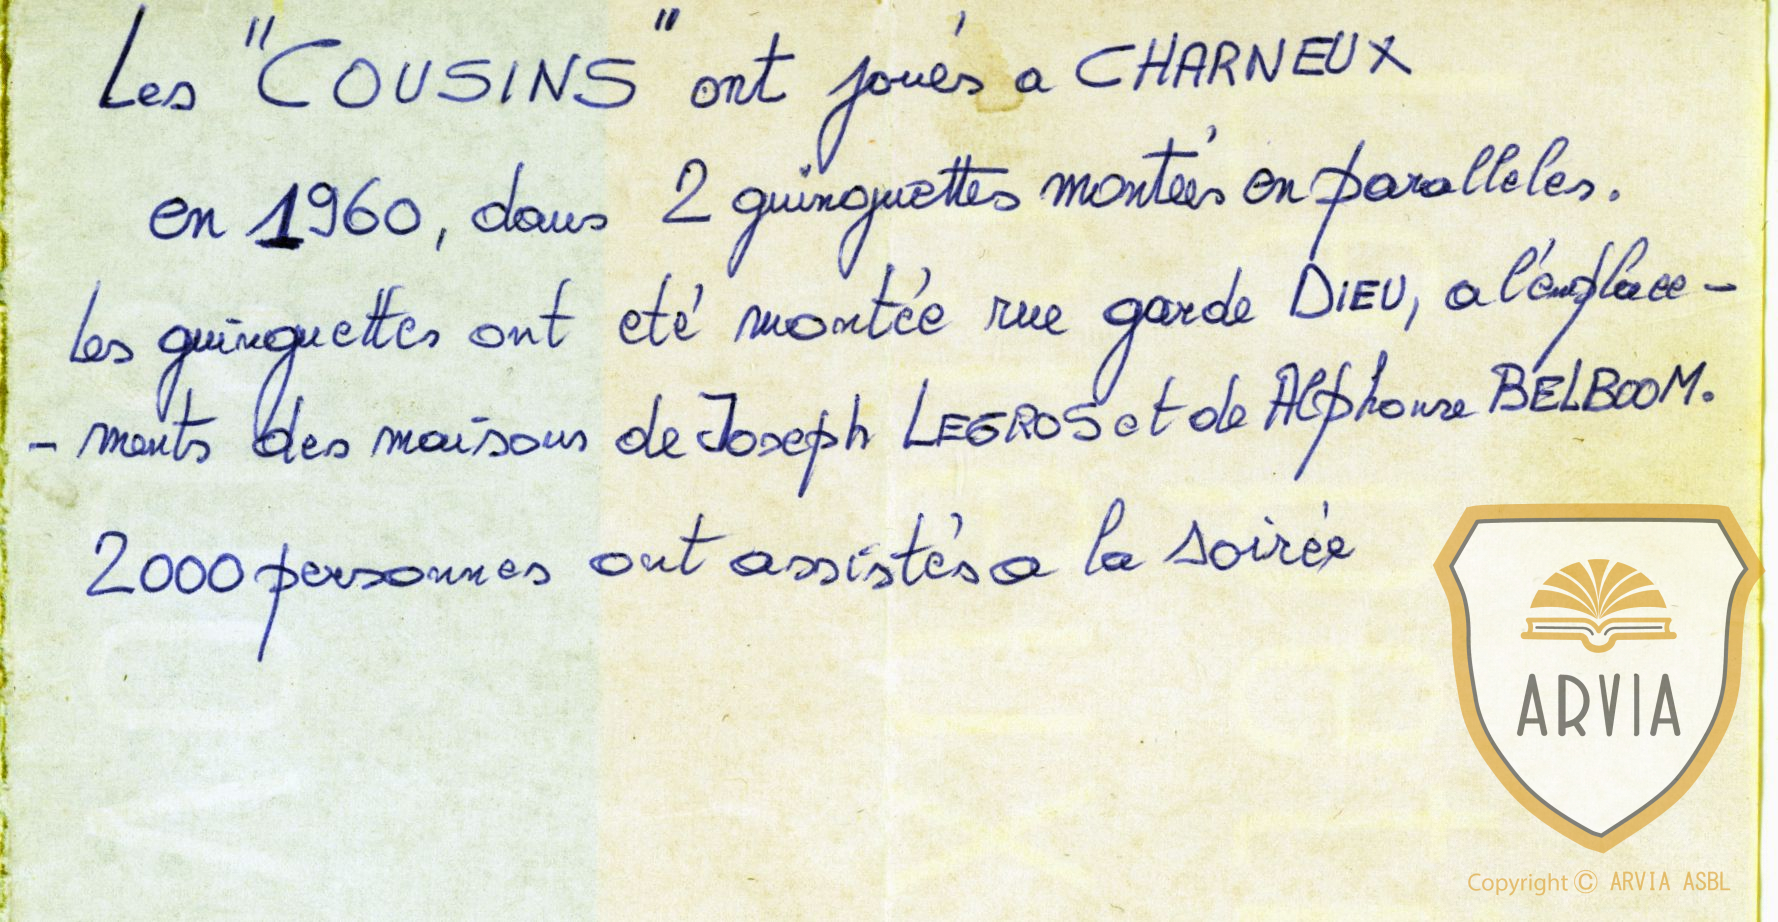 Les "COUSINS" ont joués a CHARNEUX
en 1960, dans 2 guinguettes montées en paralleles.
les guinguettes ont eté montée rue garde DIEU, a l'emplace-
- ments des maisons de Joseph LEGROS et de Alphonse BELBOOM.
2000 personnes ont assistés a la soirée
ARVIA
Copyright © ARVIA ASBL